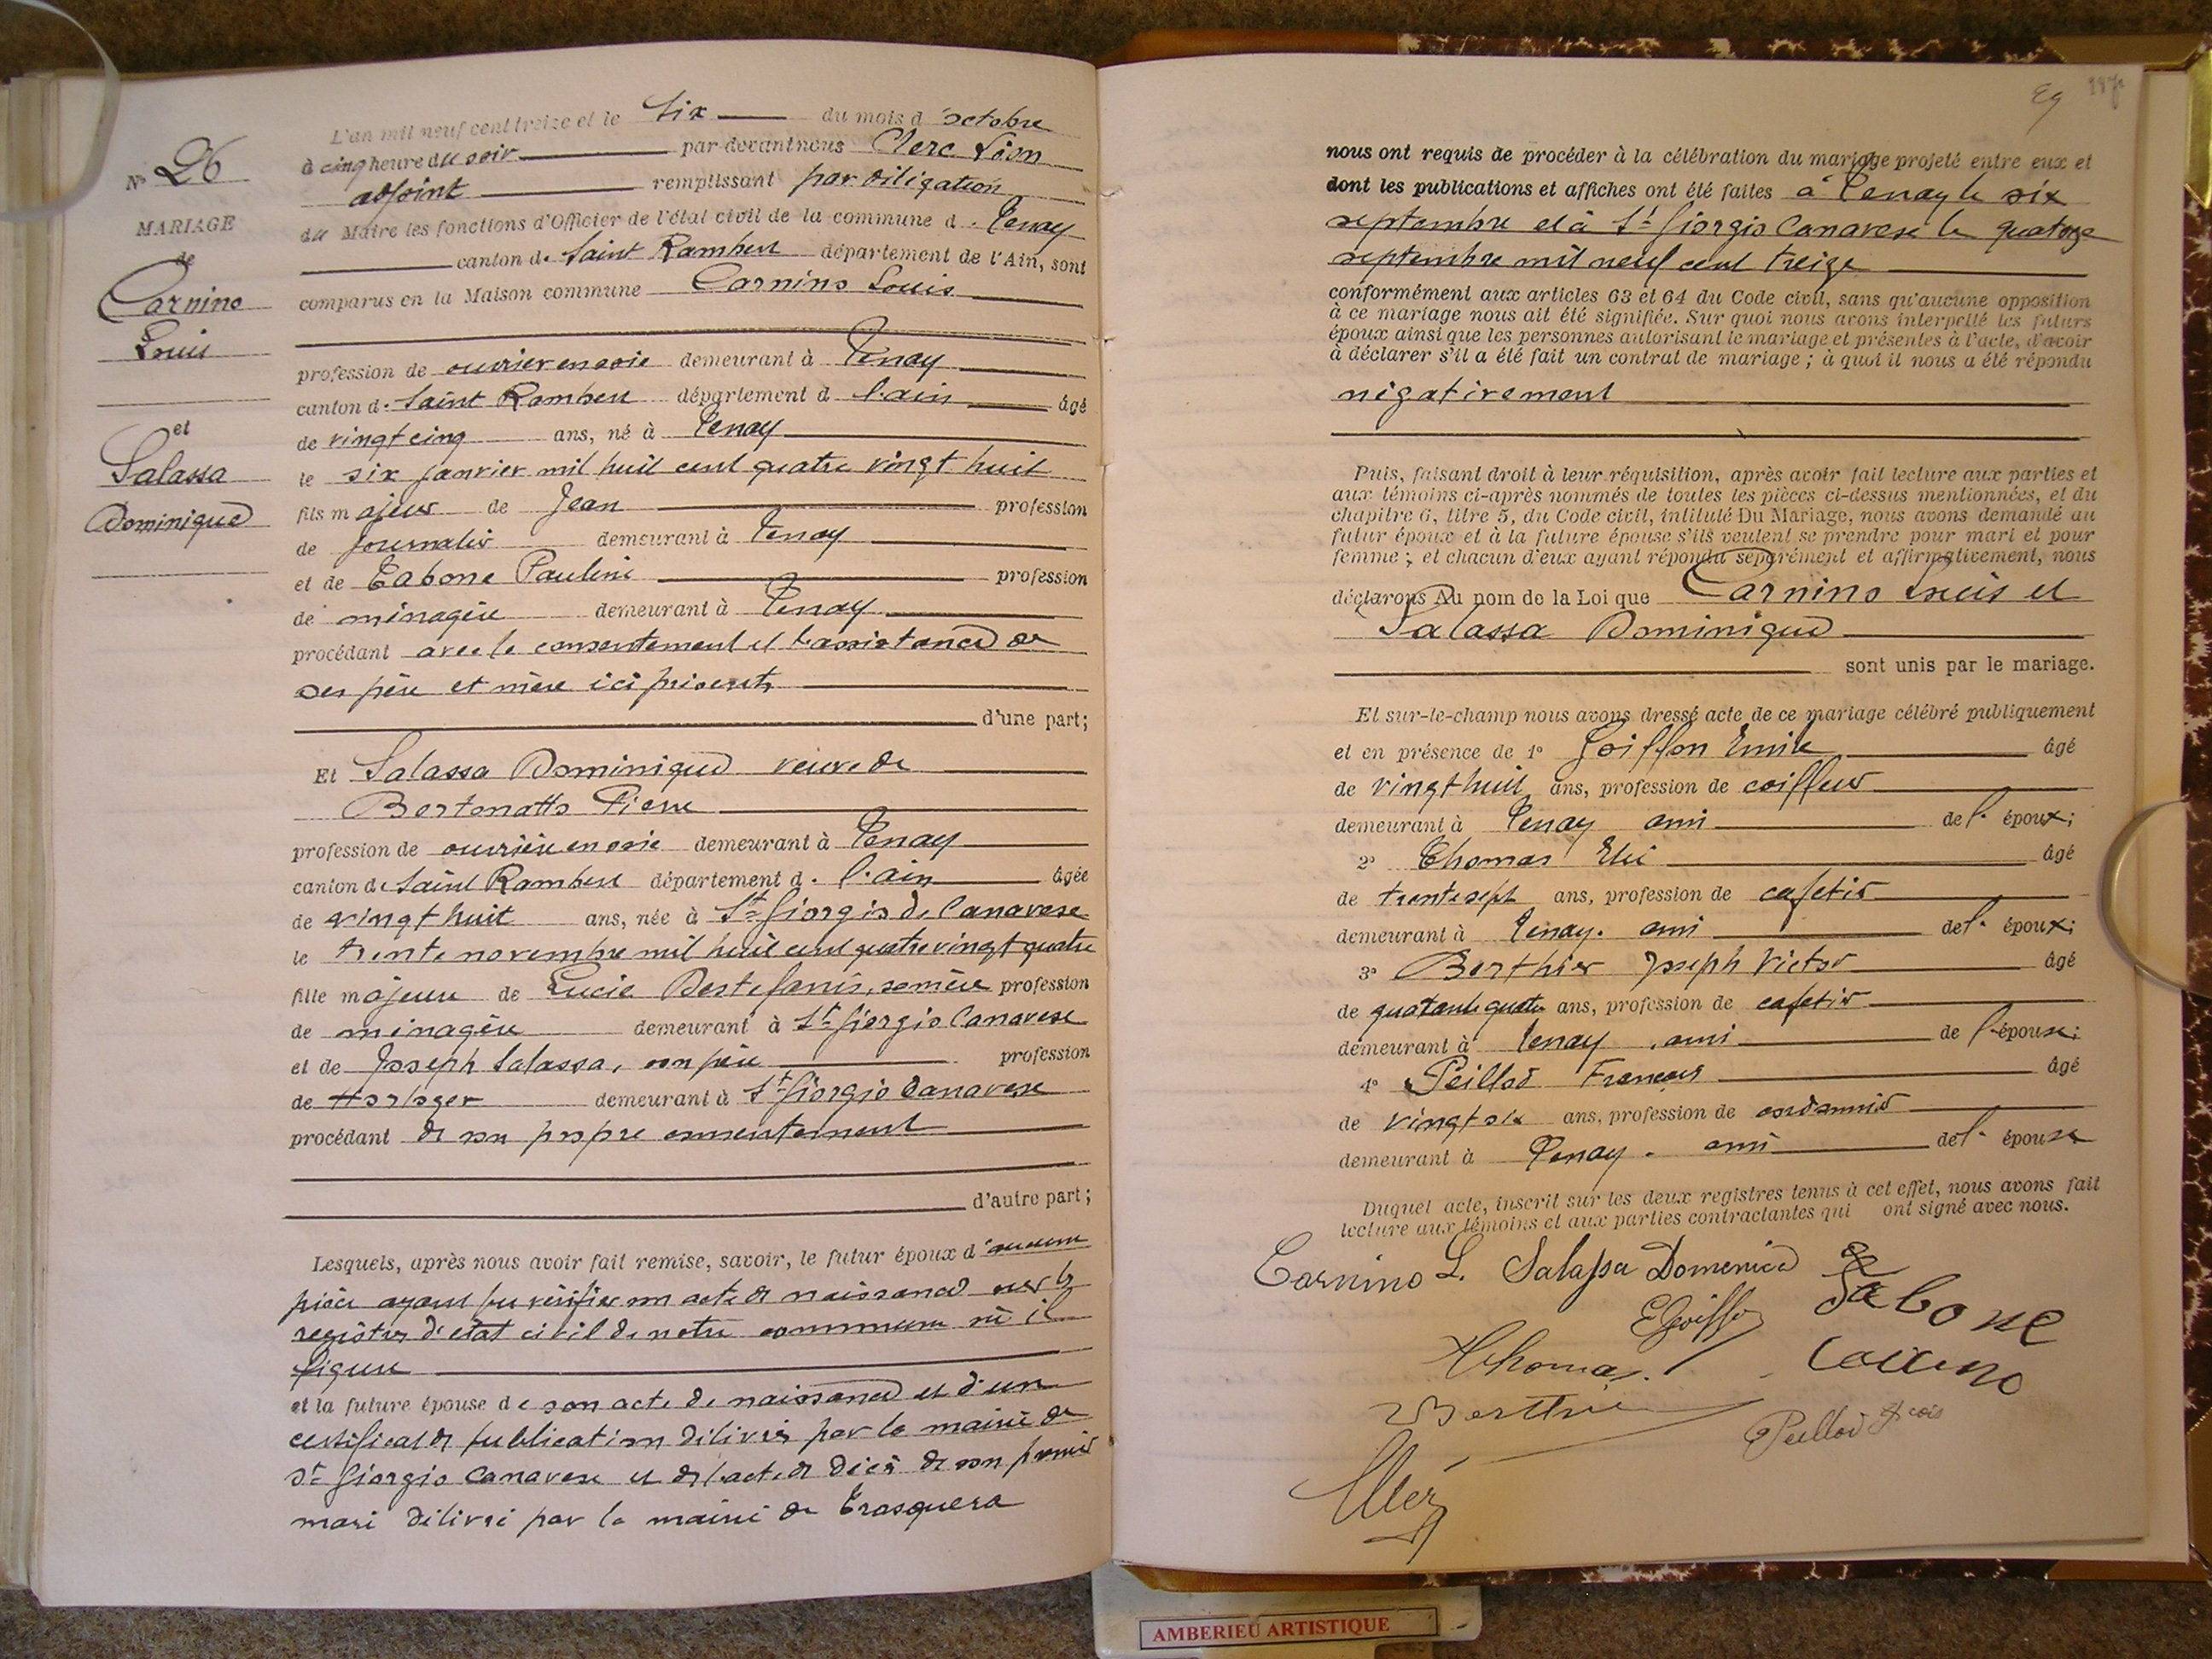 N° 26
MARIAGE
de
Carnino
Louis
et
Salassa
Dominique
L'an mil neuf cent treize et le six du mois d'octobre
à cinq heure du soir par-devant nous Clerc Léon
adjoint remplissant par délégation
du Maire les fonctions d'Officier de l'état civil de la commune d. Tenay
canton de Saint Rambert département de l'Ain, sont
comparus en la Maison commune Carnino Louis
profession de ouvrier en soie demeurant à Tenay
canton d. Saint Rambert département d l'ain âgé
de vingt cinq ans, né à Tenay
le six janvier mil huit cent quatre vingt huit
fils majeur de Jean profession
de journalier demeurant à Tenay
et de Tabone Pauline profession
de ménagère demeurant à Tenay
procédant avec le consentement et l'assistance de
ses père et mère ici présents
d'une part;
Et Salassa Dominique veuve de
Bertonatto Pierre
profession de ouvrière en soie demeurant à Tenay
canton de Saint Rambert département d. l'ain âgée
de vingt huit ans, née à St Giorgio de Canavese
le trente novembre mil huit cent quatre vingt quatre
fille majeure de Lucie Destefanis, sa mère profession
de ménagère demeurant à St Giorgio Canavese
et de Joseph Salassa, son père profession
de Horloger demeurant à St Giorgio Canavese
procédant de son propre consentement
d'autre part;
Lesquels, après nous avoir fait remise, savoir, le futur époux d'aucune
pièce ayant pu vérifier son acte de naissance sur les
registres d'état civil de notre commune où il
figure
et la future épouse de son acte de naissance et d'un
certificat de publication délivrés par la mairie de
St Giorgio Canavese et de l'acte de décès de son premier
mari délivré par la mairie de Trasquera
Eg
nous ont requis de procéder à la célébration du mariage projeté entre eux et
dont les publications et affiches ont été faites à Tenay le six
septembre et à St Giorgio Canavese le quatorze
septembre mil neuf cent treize
conformément aux articles 63 et 64 du Code civil, sans qu'aucune opposition
à ce mariage nous ait été signifiée. Sur quoi nous avons interpellé les futurs
époux ainsi que les personnes autorisant le mariage et présentes à l'acte, d'avoir
à déclarer s'il a été fait un contrat de mariage ; à quoi il nous a été répondu
négativement
Puis, faisant droit à leur réquisition, après avoir fait lecture aux parties et
aux témoins ci-après nommés de toutes les pièces ci-dessus mentionnées, et du
chapitre 6, titre 5, du Code civil, intitulé Du Mariage, nous avons demandé au
futur époux et à la future épouse s'ils veulent se prendre pour mari et pour
femme ; et chacun d'eux ayant répondu séparément et affirmativement, nous
déclarons Au nom de la Loi que Carnino Louis et
Salassa Dominique
sont unis par le mariage.
Et sur-le-champ nous avons dressé acte de ce mariage célébré publiquement
et en présence de 1° Goiffon Emile âgé
de vingt huit ans, profession de coiffeur
demeurant à Tenay ami de l' époux;
2° Thomas Elie âgé
de trente sept ans, profession de cafetier
demeurant à Tenay. ami de l' époux;
3° Berthier Joseph Victor âgé
de quarante quatre ans, profession de cafetier
demeurant à Tenay, ami de l'épouse;
4° Peillod François âgé
de vingt six ans, profession de cordonnier
demeurant à Tenay. ami de l' épouse
Duquel acte, inscrit sur les deux registres tenus à cet effet, nous avons fait
lecture aux témoins et aux parties contractantes qui ont signé avec nous.
Carnino L. Salassa Domenica
Tabone
EGoiffon
Thomas. Carnino
Berthier
Peillod Fçois
Clerc
AMBERIEU ARTISTIQUE